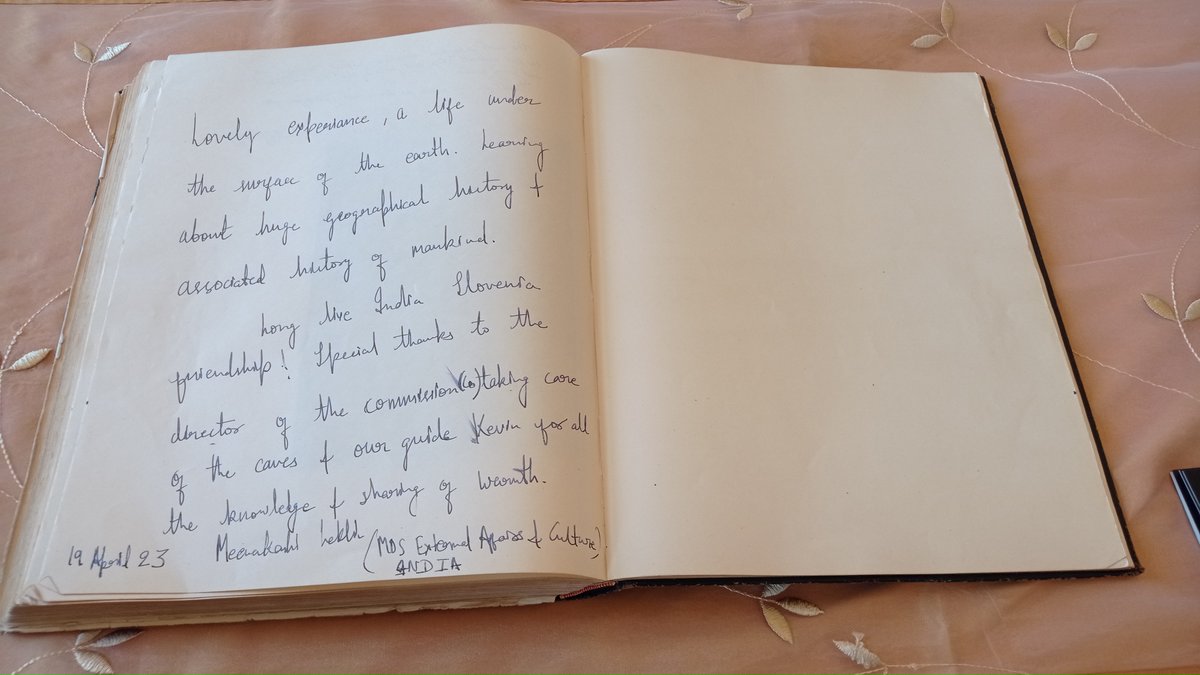 Lovely experiance, a life under
the surface of the earth. Learning
about huge geographical history &
associated history of mankind.
Long live India Slovenia
friendship! Special thanks to the
director of the commission (co) taking care
of the caves & our guide Kevin for all
the knowledge & sharing of warmth.
19 April 23 Meenakashi Lekhi (MOS External Affairs & Culture)
INDIA